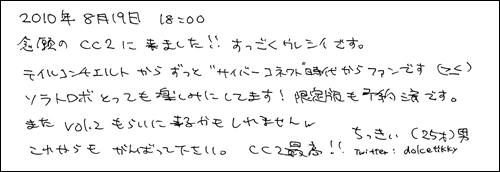 2010年8月19日 18:00
念願のCC2に来ました!! すっごくウレシイです。
テイルコンチェルトからずっと"サイバーコネクト"時代からファンです (><)
ソラトロボとっても楽しみにしてます! 限定版も予約済です。
また vol.2 もらいに来るかもしれません
これからもがんばって下さい。 CC2最高!!
ちっきい (25才) 男
Twitter: dolcetikky